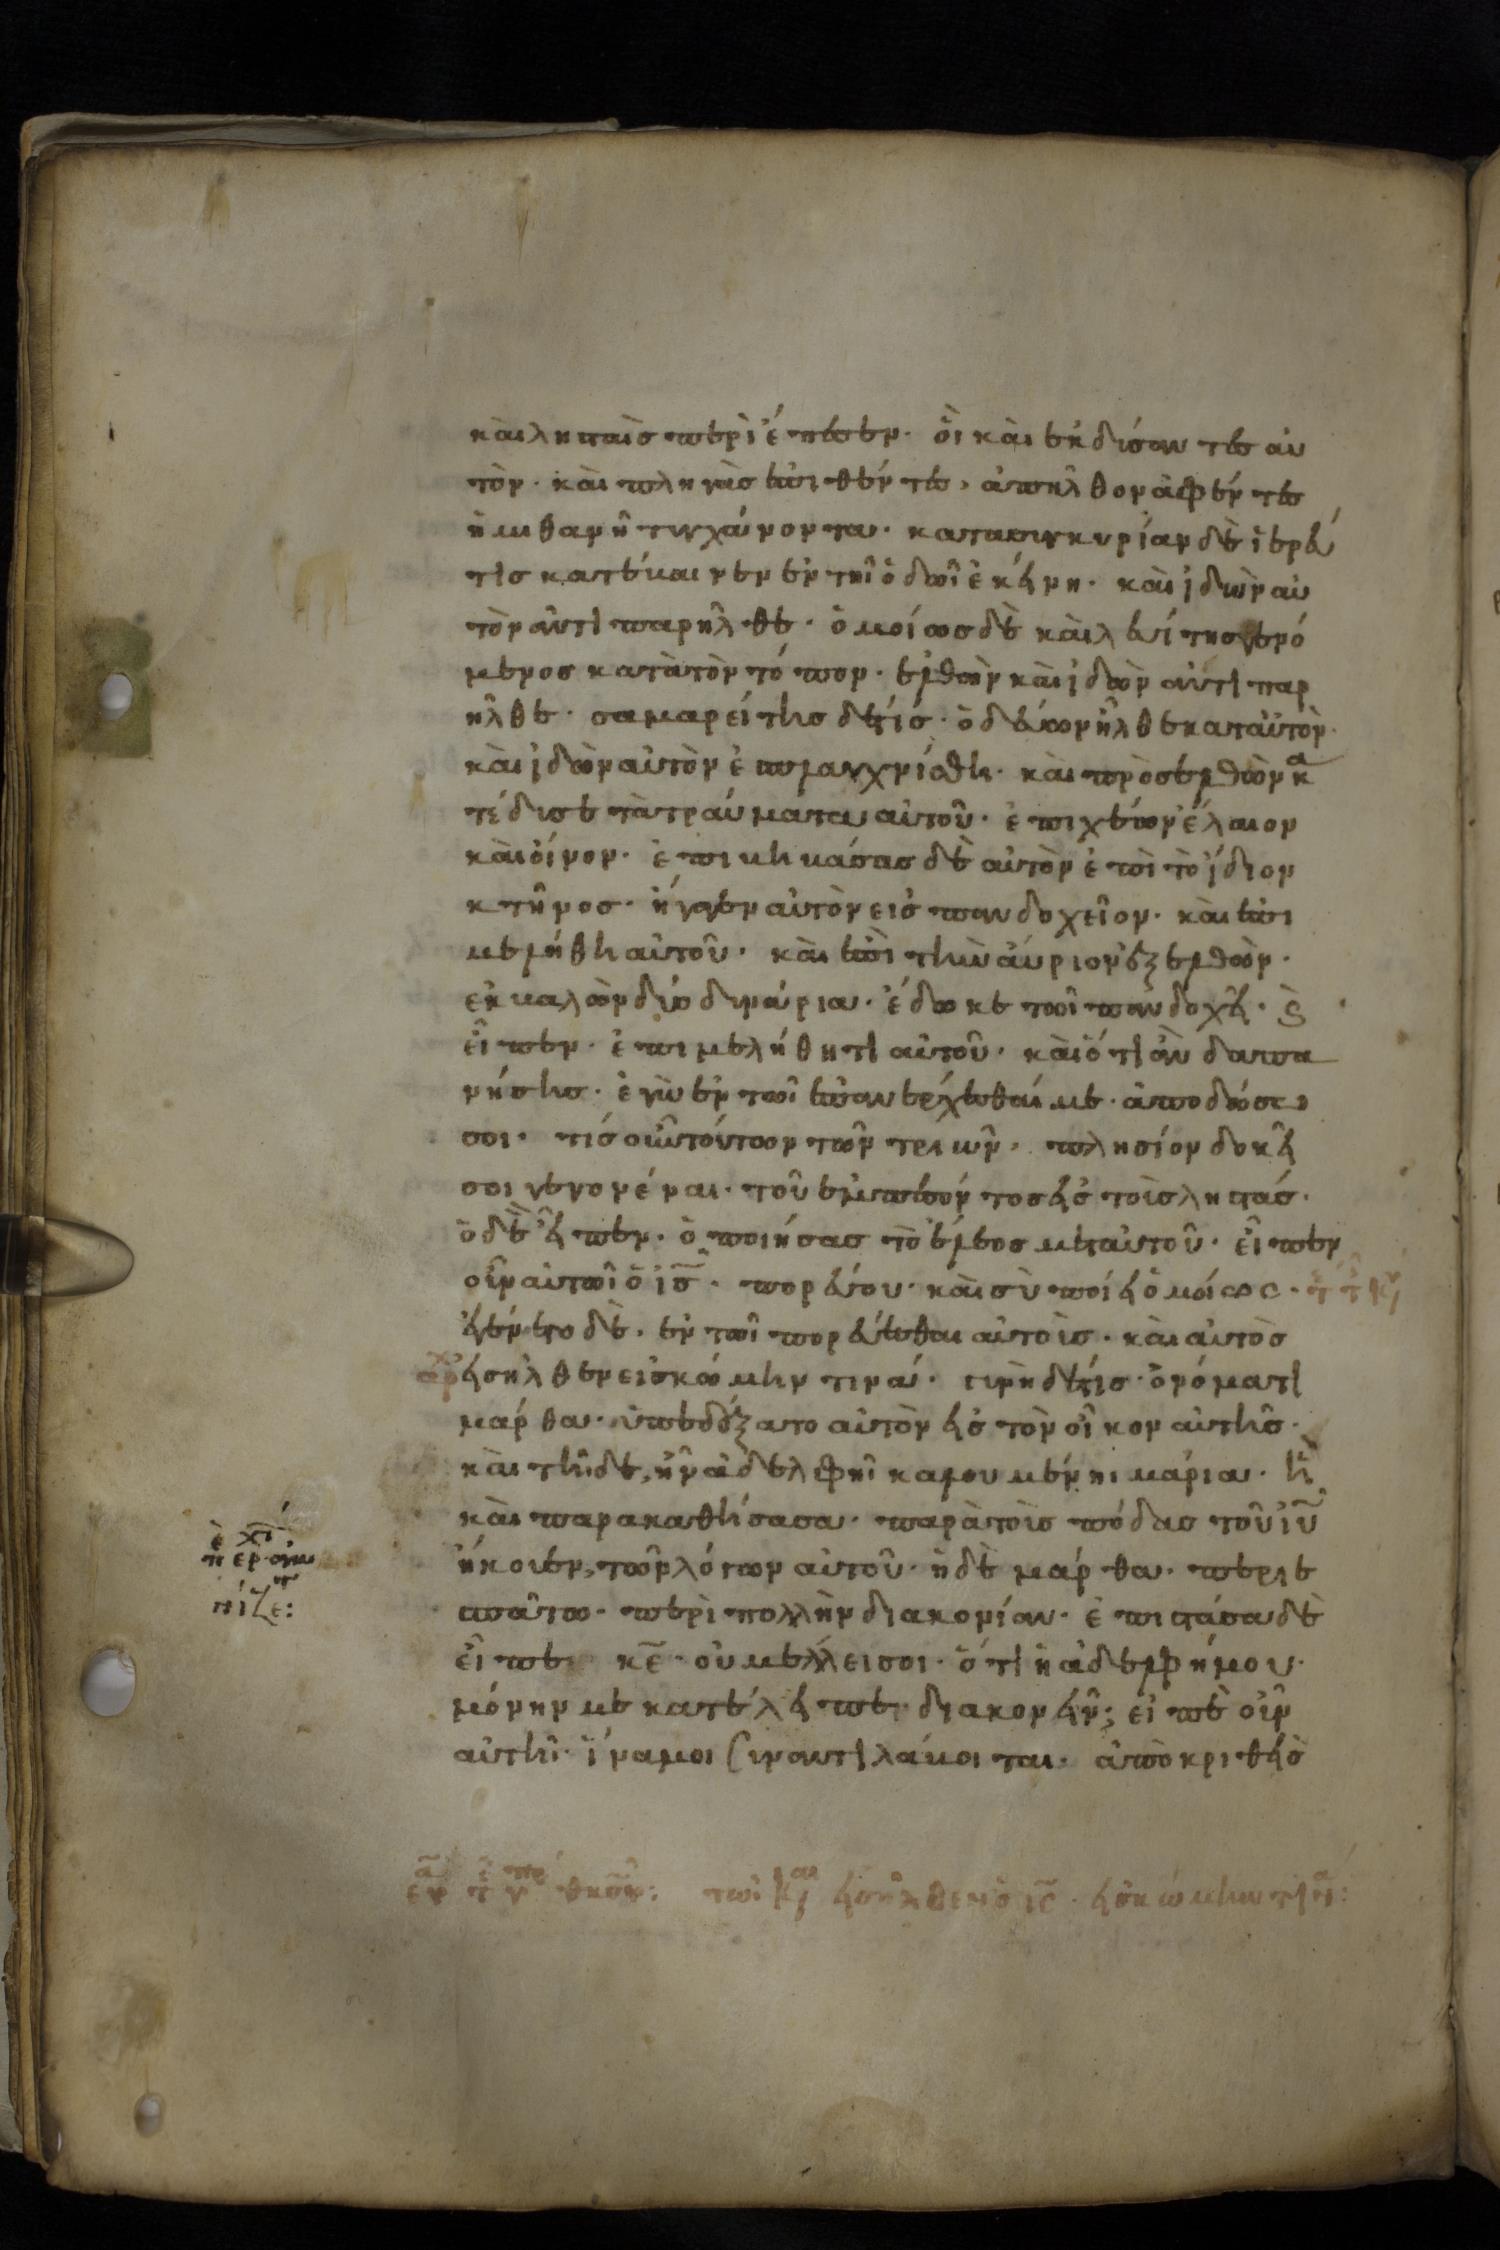 κὰι ληιταῖσ περὶέπεσεν· ὃι κὰι ἐκδύσαντεσ ἀυ
τὸν· κὰι πληγὰσ ἐπιθέντεσ, ἀπῆλθον ἀφέντεσ
ἡμιθανῆ τυγχάνοντα· κατασυγκυρίαν δὲ ἱερεύ
τισ κατέβαινεν ἐν τῆι ὁδῶι ἐκείνη· κὰι ἰδὼν ἀυ
τὸν ἀντιπαρῆλθε· ὁμοίωσ δὲ κὰι λευίτησ γενό
μενοσ κατὰ τὸν τόπον· ἐλθὼν κὰι ἰδὼν ἀντιπαρ
ῆλθε· σαμαρείτησ δέτισ· ὁδεύων ἦλθε κατἀυτὸν·
κὰι ἰδὼν αὐτὸν ἐσπλαγχνίσθη· κὰι πρὸσελθὼν κα
τέδυσε τὰ τραύματα αὐτοῦ· ἐπιχέων ἔλαιον
κὰι ὀίνον· ἐπιβιβάσασ δὲ αὐτὸν ἐπὶ τὸ ἴδιον
κτῆνοσ· ἤγαγεν αὐτὸν εισ πανδοχεῖον· κὰι ἐπι
μελήθη αὐτοῦ· κὰι ἐπὶ τὴν ἀύριον ἐξελθὼν·
ἐκβαλὼν δύο δηνάρια· ἔδωκε τῶι πανδοχεῖ· ϗ
εἶπεν· ἐπιμελήθητι αὐτοῦ· κὰι ὅτι ἂν δαπα
νήσησ· ἐγὼ ἐν τῶι ἐπανέρχεσθαί με· ἀποδώσω
σοι· τίσ οὖν τούτων τῶν τριῶν· πλησίον δοκεῖ
σοι γεγονέναι· τοῦ ἐμπεσόντοσ εἰσ τοὺσ ληιστάσ·
ὁ δὲ εἶπεν· ὁ ποιήσασ τὸ ἔλεοσ μεταὐτοῦ· εἶπεν
οὖν αὐτῶι ὁ ἰσ̅· πορεύου· κὰι σὺ ποίει ὁμοίωσ·
ἐγένετο δὲ· ἐν τῶι πορεύεσθαι αὐτοὺσ· κὰι αὐτὸσ
εἰσῆλθεν εἰσ κώμην τινά· γυνὴ δέτισ· ὀνόματι
μάρθα· ὑπεδέξατο αὐτὸν εἰσ τὸν οἶκον αὐτῆσ·
κὰι τῆιδε, ἦν ἀδελφὴ καλουμένηι μάρια· ἣ
κὰι παρακαθίσασα· παρὰ τοὺσ πόδασ τοῦ ἰυ̅
ἤκουεν, τῶν λόγων αὐτοῦ· ἡ δὲ μάρθα· περιε
σπᾶτο· περὶ πολλὴν διακονίαν· ἐπιστάσα δὲ
εἶπε κε̅· οὐ μέλλει σοι· ὅτι ἡ ἀδελφή μου·
μόνην με κατέλειπε διακονεῖν; εἰπὲ οὖν
αὐτῆι· ἵνα μοι συναντιλάβοιται· ἀποκριθεὶσ